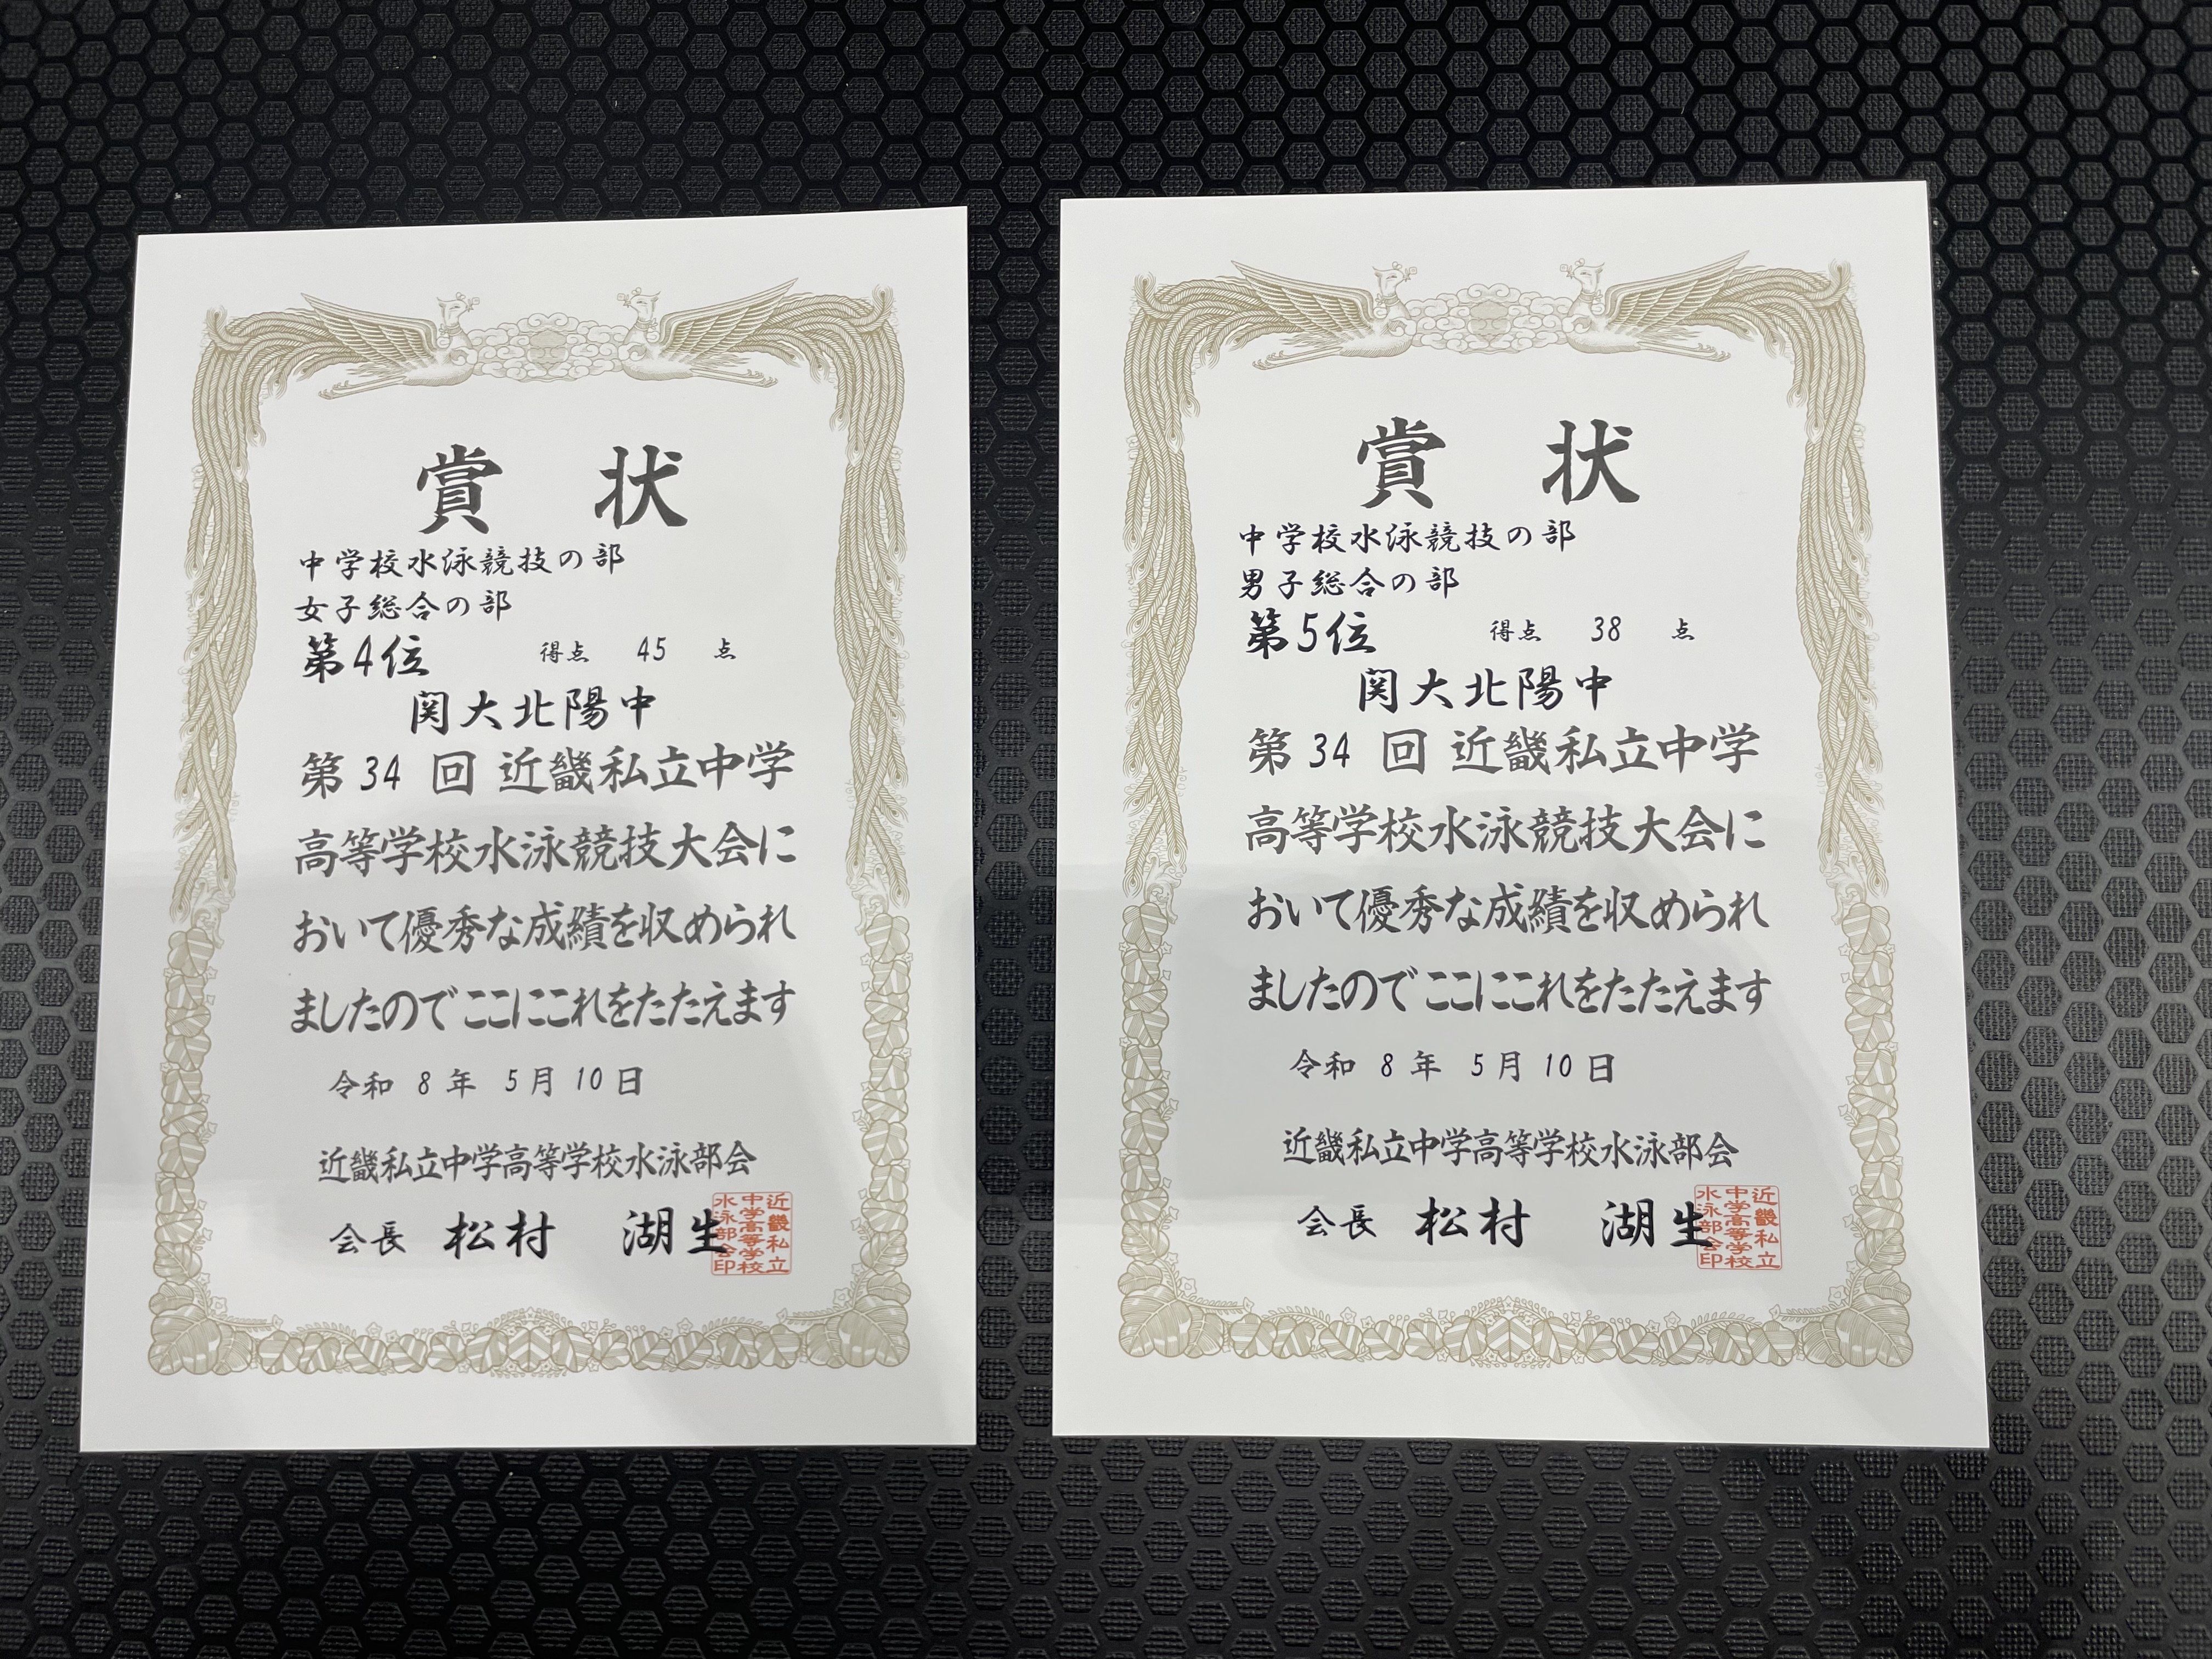 賞状
中学校水泳競技の部
女子総合の部
第4位 得点 45 点
関大北陽中
第 34 回 近畿私立中学
高等学校水泳競技大会に
おいて優秀な成績を収められ
ましたのでここにこれをたたえます
令和 8 年 5 月 10 日
近畿私立中学高等学校水泳部会
会長 松村 湖生
近畿私立
中学高等学校
水泳部会印
賞状
中学校水泳競技の部
男子総合の部
第5位 得点 38 点
関大北陽中
第 34 回 近畿私立中学
高等学校水泳競技大会に
おいて優秀な成績を収められ
ましたのでここにこれをたたえます
令和 8 年 5 月 10 日
近畿私立中学高等学校水泳部会
会長 松村 湖生
近畿私立
中学高等学校
水泳部会印